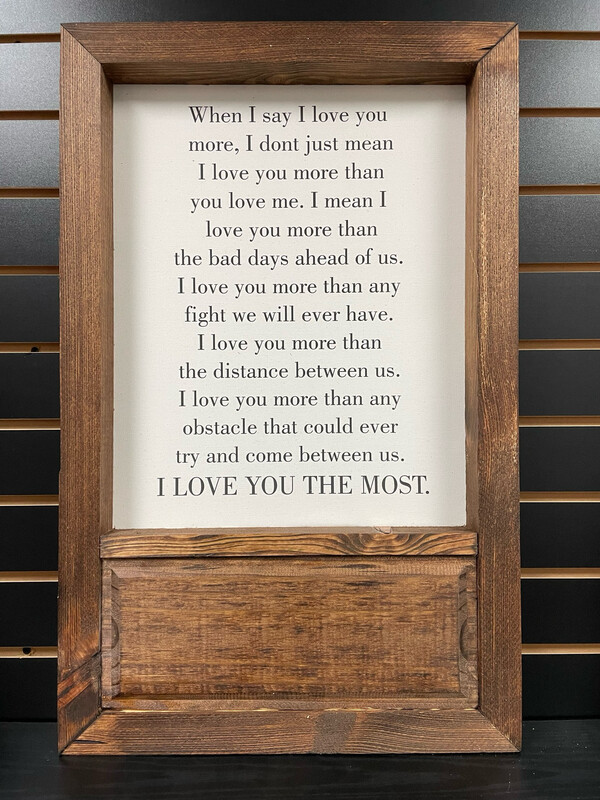 When I say I love you
more, I dont just mean
I love you more than
you love me. I mean I
love you more than
the bad days ahead of us.
I love you more than any
fight we will ever have.
I love you more than
the distance between us.
I love you more than any
obstacle that could ever
try and come between us.
I LOVE YOU THE MOST.